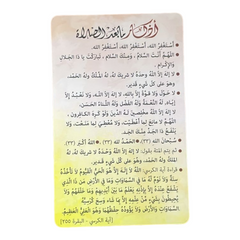 أذكار ما بعد الصلاة
أَسْتَغْفِرُ اللهَ، أَسْتَغْفِرُ اللهَ، أَسْتَغْفِرُ اللهَ.
اللَّهُمَّ أَنْتَ السَّلَامُ، وَمِنْكَ السَّلَامُ، تَبَارَكْتَ يَا ذَا الجَلَالِ
وَالإِكْرَامِ
لَا إِلَهَ إِلَّا اللهُ وَحْدَهُ لَا شَرِيكَ لَهُ، لَهُ المُلْكُ وَلَهُ الحَمْدُ،
وَهُوَ عَلَى كُلِّ شَيْءٍ قَدِيرٌ.
لَا حَوْلَ وَلَا قُوَّةَ إِلَّا بِاللهِ، لَا إِلَهَ إِلَّا اللهُ، وَلَا نَعْبُدُ إِلَّا
إِيَّاهُ، لَهُ النِّعْمَةُ وَلَهُ الفَضْلُ وَلَهُ الثَّنَاءُ الحَسَنُ، لَا إِلَهَ
إِلَّا اللهُ مُخْلِصِينَ لَهُ الدِّينَ وَلَوْ كَرِهَ الكَافِرُونَ.
يَنْفَعُ ذَا الجَدِّ مِنْكَ الجَدُّ.
سُبْحَانَ اللهِ (٣٣). الحَمْدُ لله (٣٣). اللهُ أَكْبَرُ (٣٣).
لَا إِلَهَ إِلَّا اللهُ وَحْدَهُ لَا شَرِيكَ لَهُ، لَهُ المُلْكُ
وَلَهُ الحَمْدُ، وَهُوَ عَلَى كُلِّ شَيْءٍ قَدِيرٌ.
قراءة آية الكرسي: اللهُ لَا إِلَهَ إِلَّا هُوَ الحَيُّ القَيُّومُ لَا تَأْخُذُهُ
سِنَةٌ وَلَا نَوْمٌ لَهُ مَا فِي السَّمَاوَاتِ وَمَا فِي الأَرْضِ مَنْ ذَا الَّذِي
يَشْفَعُ عِنْدَهُ إِلَّا بِإِذْنِهِ يَعْلَمُ مَا بَيْنَ أَيْدِيهِمْ وَمَا خَلْفَهُمْ وَلَا
يُحِيطُونَ بِشَيْءٍ مِنْ عِلْمِهِ إِلَّا بِمَا شَاءَ وَسِعَ كُرْسِيُّهُ
السَّمَاوَاتِ وَالأَرْضَ وَلَا يَؤُودُهُ حِفْظُهُمَا وَهُوَ العَلِيُّ العَظِيمُ.
[آية الكرسي - البقرة ٢٥٥]